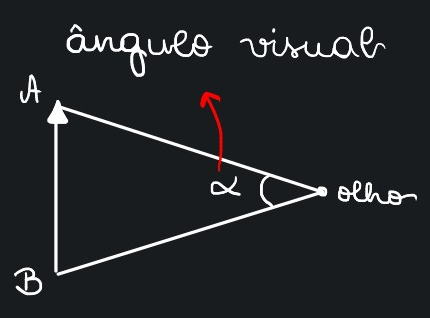 ângulo visual
A
α olho
B